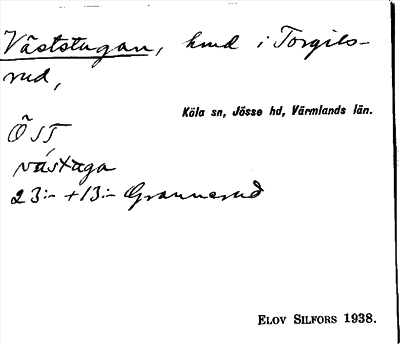 Väststugan, hmd i Torgils-
rud,
Köla sn, Jösse hd, Värmlands län.
ÖST
västaga
23:- +13:- Grannerud
ELOV SILFORS 1938.